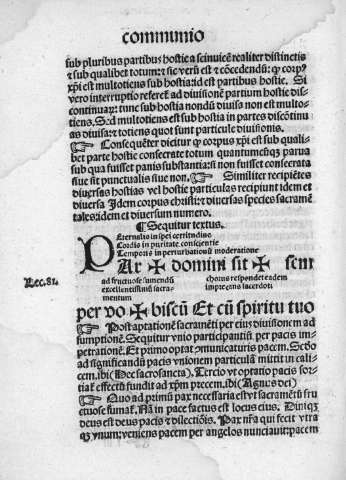 communio
sub pluribus partibus hostie a seinuicē realiter distinctis
⁊ sub qualibet totum: ⁊ sic verū est ⁊ cōcedendū: ꝙ corpꝰ
xp̄i est multotiens sub hostia: id est partibus hostie. Si
vero interruptio referet̄ ad diuisionē partium hostie dis-
continuaꝝ: tunc sub hostia nondū diuisa non est multo-
tiens. Sed multotiens est sub hostia in partes discōtinu
as diuisa: ⁊ totiens quot sunt particule diuisionis.
☞ Consequēter dicitur ꝙ corpus xp̄i est sub quali-
bet parte hostie consecrate totum quantumcūqꝫ parua
sub qua fuisset panis substantia: si non fuisset consecrata
siue sit punctualis siue non. ☞ Similiter recipiētes
diuersas hostias vel hostie particulas recipiunt idem et
diuersa. Idem corpus christi: et diuersas species sacramē
tales: idem et diuersum numero.
¶ Sequitur textus.
Eternalis in spei certitudine
Cordis in puritate conscientie
Temporis in perturbationū moderatione
PAr ✠ domini sit ✠ semper
Lec. 81.
ad fructuose sumendū
excellentissimū sacra-
mentum
chorus respondet eadem
imprecans sacerdoti
per vo ✠ biscū Et cū spiritu tuo
☞ Post aptationē sacramēti per eius diuisionem ad
sumptionē. Sequitur vnio participantiū per pacis im-
petrationē. Et primo optat ꝯmunicaturis pacem. Secūdo
ad significandū pacis vnionem particulā mittit in cali-
cem. ibi (Hec sacrosancta). Tercio vt optatio pacis sor-
tiat̄ effectū fundit ad xp̄m precem. ibi (Agnus dei)
☞ Quo ad primū pax necessaria est vt sacramētū fru
ctuose sumat̄. Nā in pace factus est locus eius. Diniqꝫ
deus est deus pacis ⁊ dilectiōis. Pax nr̄a qui fecit vtra
qꝫ vnum: veniens pacem per angelos nunciauit: pacem